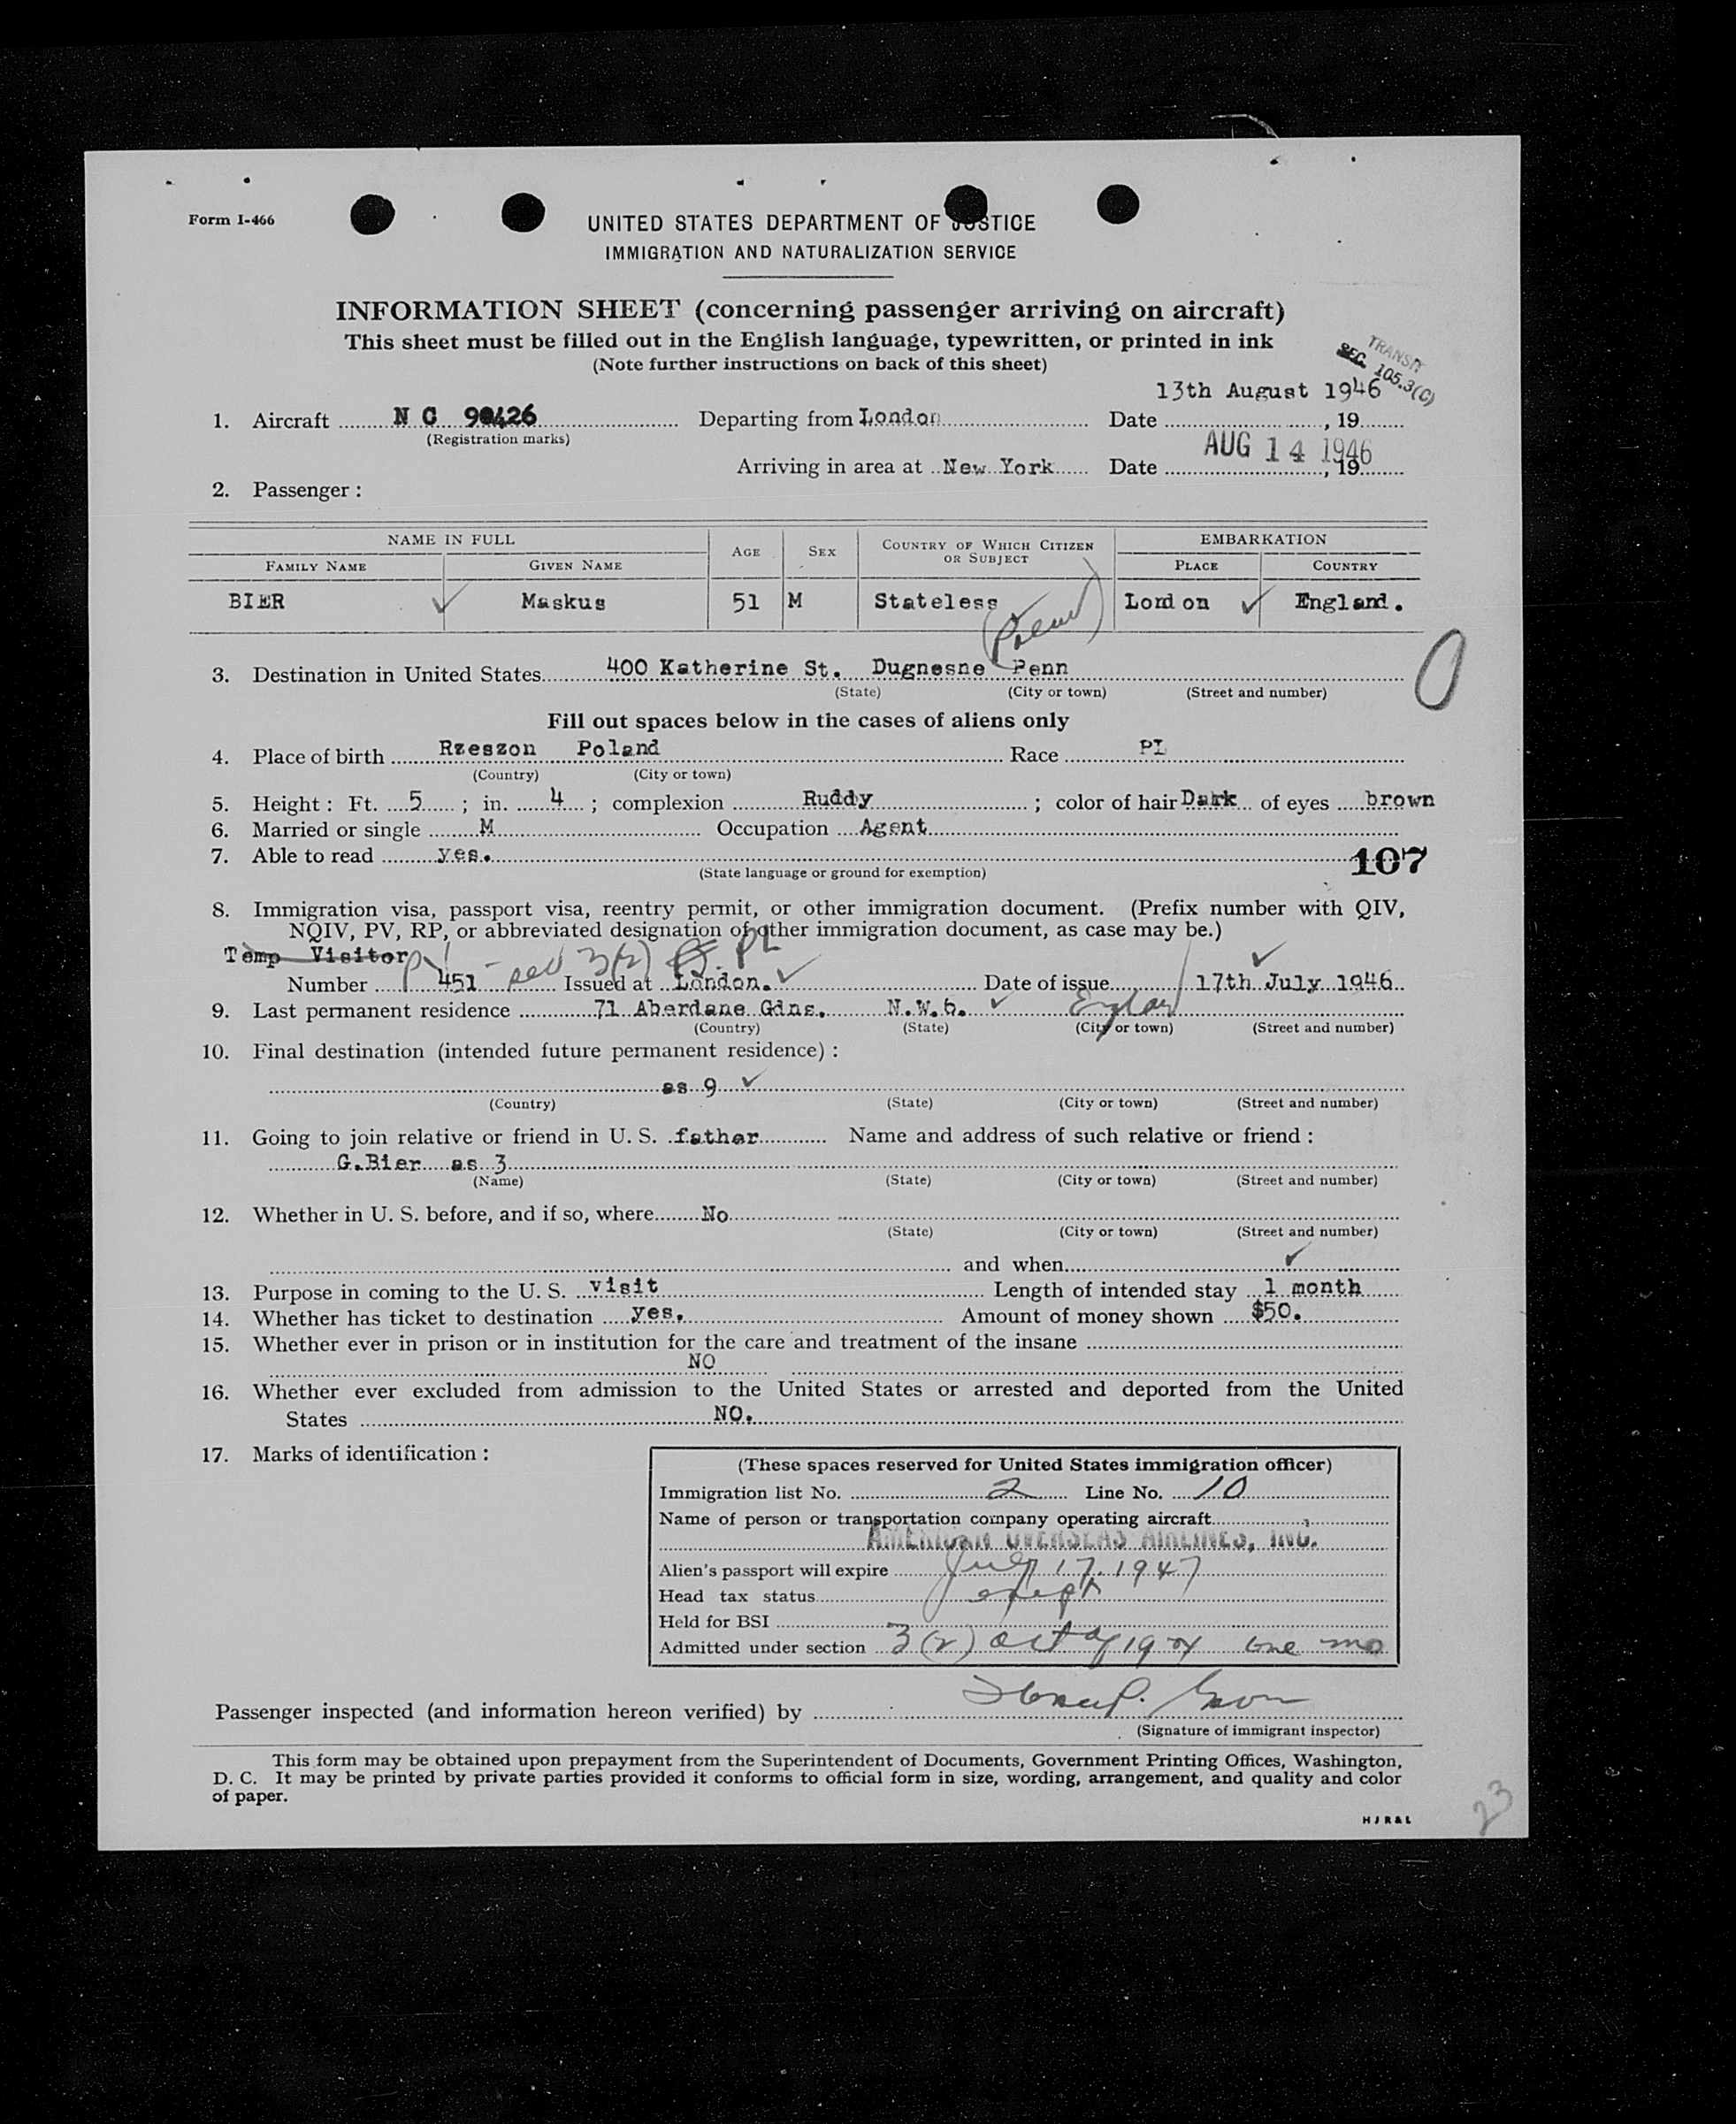 Form I-466
UNITED STATES DEPARTMENT OF JUSTICE
IMMIGRATION AND NATURALIZATION SERVICE
INFORMATION SHEET (concerning passenger arriving on aircraft)
This sheet must be filled out in the English language, typewritten, or printed in ink
(Note further instructions on back of this sheet)
TRANSIT
SEC. 105.3(C)
13th August 1946
1. Aircraft N C 90426 Departing from London Date , 19
(Registration marks)
AUG 14 1946
Arriving in area at New York Date , 19
2. Passenger :
NAME IN FULL AGE SEX COUNTRY OF WHICH CITIZEN OR SUBJECT EMBARKATION
FAMILY NAME GIVEN NAME PLACE COUNTRY
BIER Maskus 51 M Stateless London England.
3. Destination in United States 400 Katherine St. Dugnesne Penn
(State) (City or town) (Street and number)
Fill out spaces below in the cases of aliens only
4. Place of birth Rzeszon Poland Race PL
(Country) (City or town)
5. Height : Ft. 5 ; in. 4 ; complexion Ruddy ; color of hair Dark of eyes brown
6. Married or single M Occupation Agent
7. Able to read yes.
(State language or ground for exemption)
107
8. Immigration visa, passport visa, reentry permit, or other immigration document. (Prefix number with QIV,
NQIV, PV, RP, or abbreviated designation of other immigration document, as case may be.)
Temp Visitor PV 3(2) PL
Number 451 Issued at London. Date of issue 17th July 1946
9. Last permanent residence 71 Aberdane Gdns. N.W.6. England
(Country) (State) (City or town) (Street and number)
10. Final destination (intended future permanent residence) :
as 9
(Country) (State) (City or town) (Street and number)
11. Going to join relative or friend in U. S. father Name and address of such relative or friend :
G.Bier as 3
(Name) (State) (City or town) (Street and number)
12. Whether in U. S. before, and if so, where No
(State) (City or town) (Street and number)
and when
13. Purpose in coming to the U. S. visit Length of intended stay 1 month
14. Whether has ticket to destination yes. Amount of money shown $50.
15. Whether ever in prison or in institution for the care and treatment of the insane
NO
16. Whether ever excluded from admission to the United States or arrested and deported from the United
States NO.
17. Marks of identification :
(These spaces reserved for United States immigration officer)
Immigration list No. 2 Line No. 10
Name of person or transportation company operating aircraft
AMERICAN OVERSEAS AIRLINES, INC.
Alien's passport will expire July 17. 1947
Head tax status exept
Held for BSI
Admitted under section 3(2) act of 1924 one mo
Passenger inspected (and information hereon verified) by
(Signature of immigrant inspector)
This form may be obtained upon prepayment from the Superintendent of Documents, Government Printing Offices, Washington,
D. C. It may be printed by private parties provided it conforms to official form in size, wording, arrangement, and quality and color
of paper.
H J R & L
23